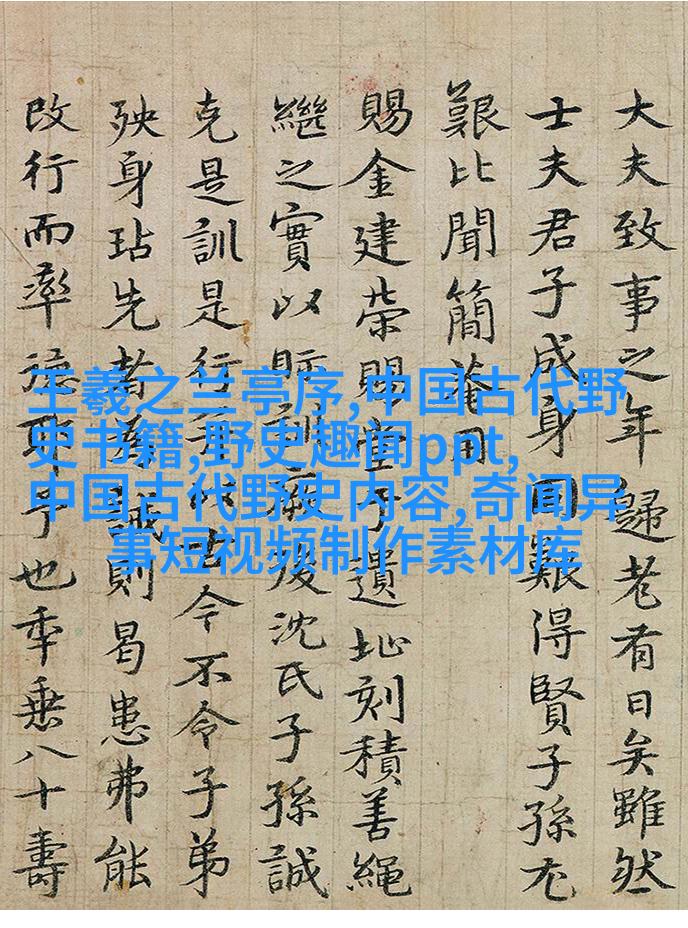 大夫致事之年歸老有日矣雖然
士夫君子成身固艱得賢子孫尤
艱比聞簡菴用
賜金建榮賜堂于遺址刻積善繩
繼之實以貽訓厥後沈氏子孫誠
克是訓是行以令不令子弟
殃身玷先者為誡則曷患弗能
改行而率德耶予也年垂八十壽
王羲之兰亭序,中国古代野
史书籍,野史趣闻ppt,
中国古代野史内容,奇闻异
事短视频制作素材库